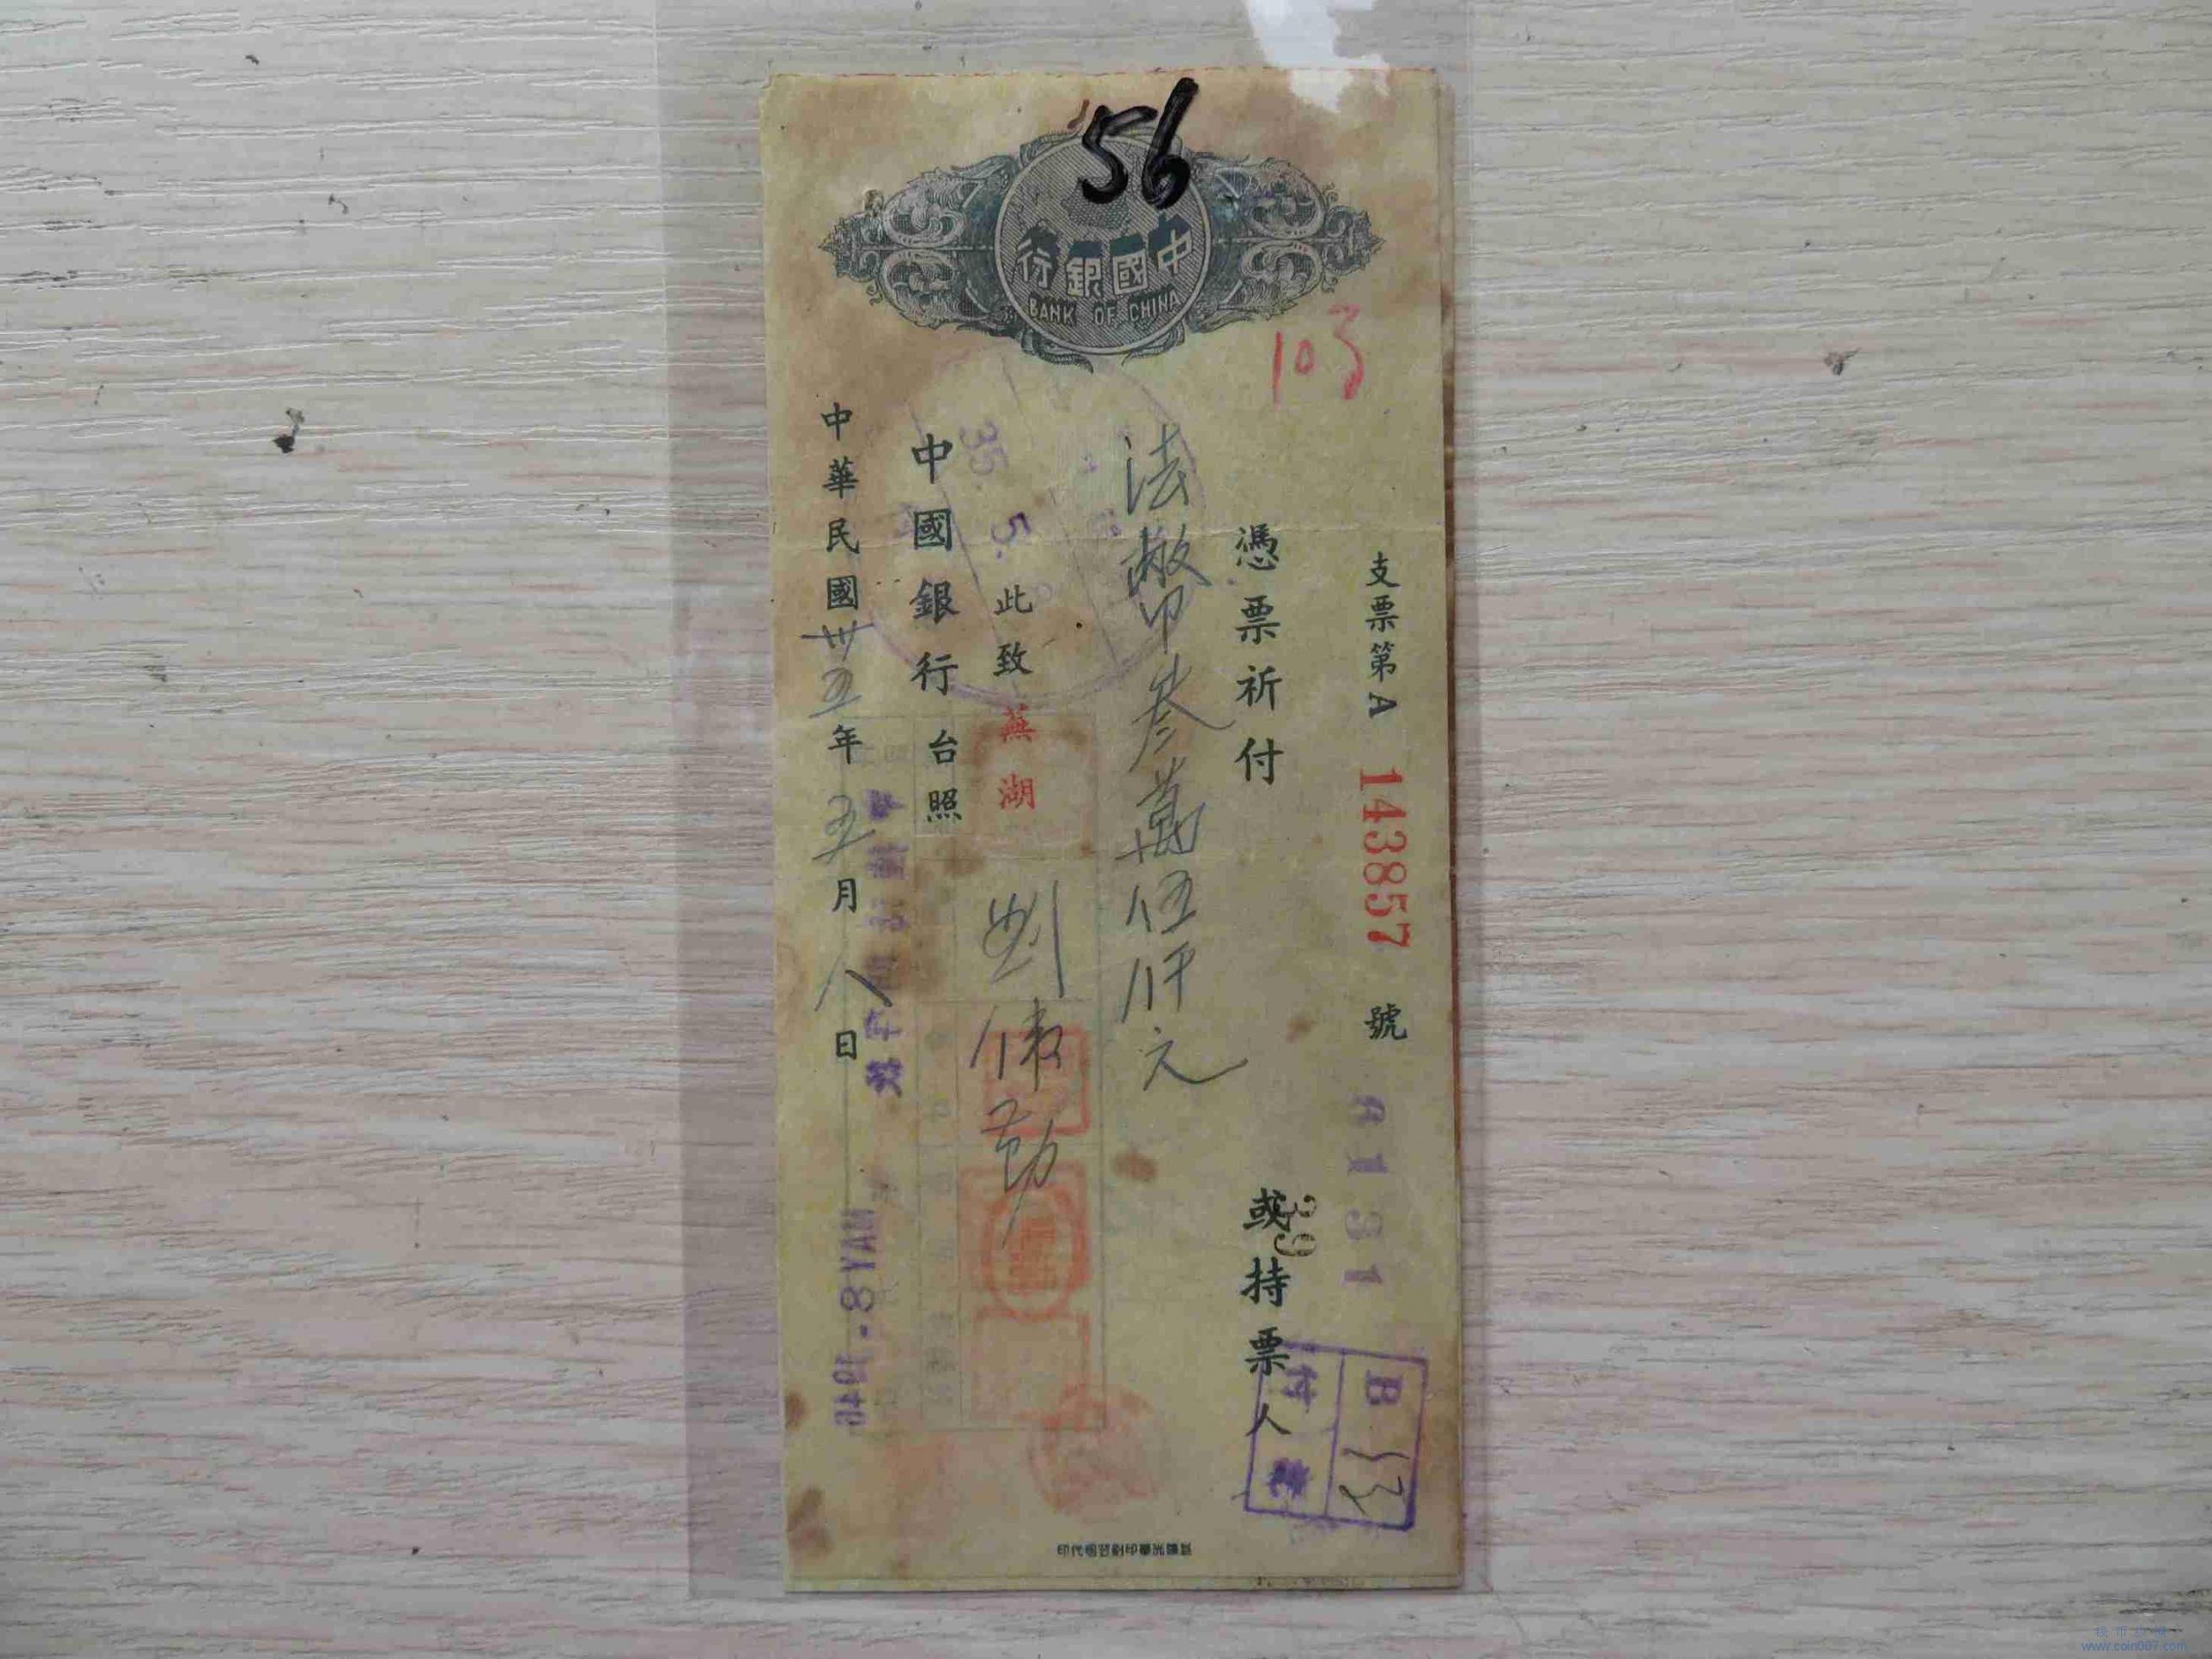 56
中國銀行
BANK OF CHINA
103
支票第A 143857 號
A1131
憑票祈付
或持票人
39
法幣叁萬伍仟元
此致
蕪湖
中國銀行台照
35. 5.
中華民國卅五年五月八日
MAY 8 - 1946
B 13
付
www.coin007.com